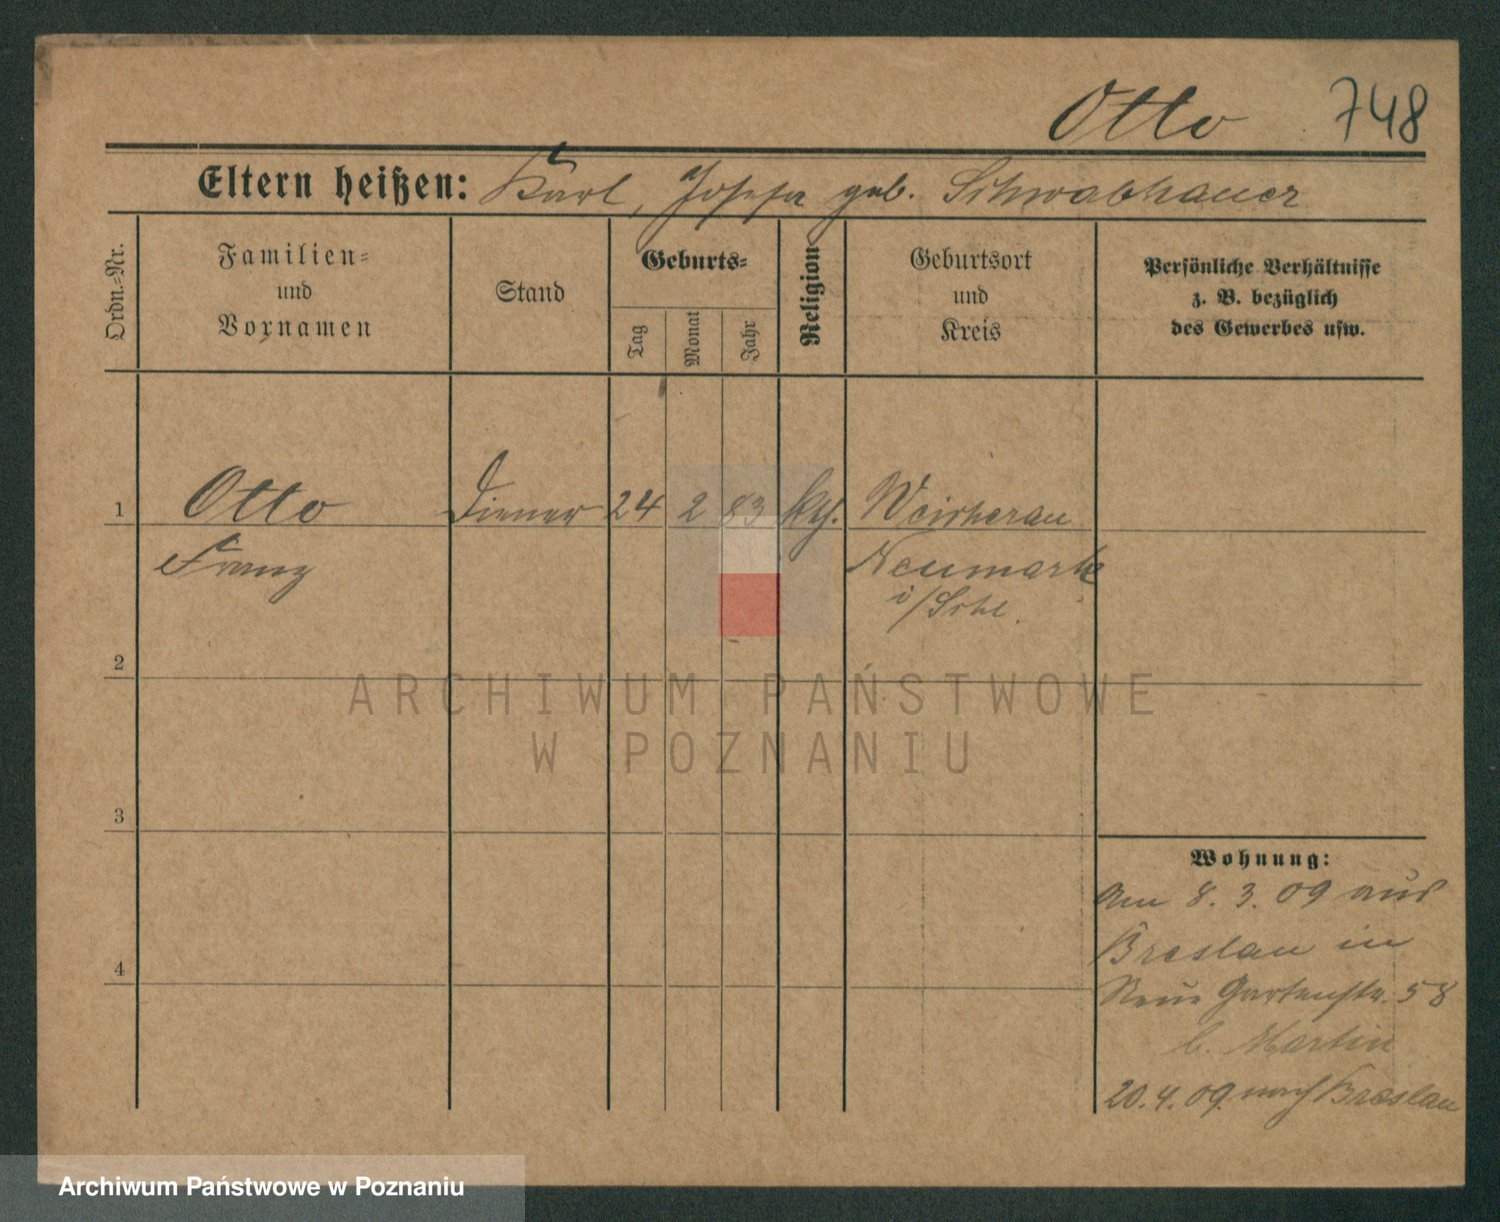 Otto 748
Eltern heißen: Karl, Josefa geb. Schwabhauer
Ordn.=Nr.
Familien=
und
Vornamen
Stand
Geburts=
Tag
Monat
Jahr
Religion
Geburtsort
und
Kreis
Persönliche Verhältnisse
z. B. bezüglich
des Gewerbes usw.
1 Otto Diener 24 2 83 kth. Weicherau
Franz Neumark
i/Schl.
2
3
4
Wohnung:
Am 8. 3. 09 aus
Breslau in
Neue Gartenstr. 58
b. Martin
20.4.09. nach Breslau
ARCHIWUM PAŃSTWOWE
W POZNANIU
Archiwum Państwowe w Poznaniu